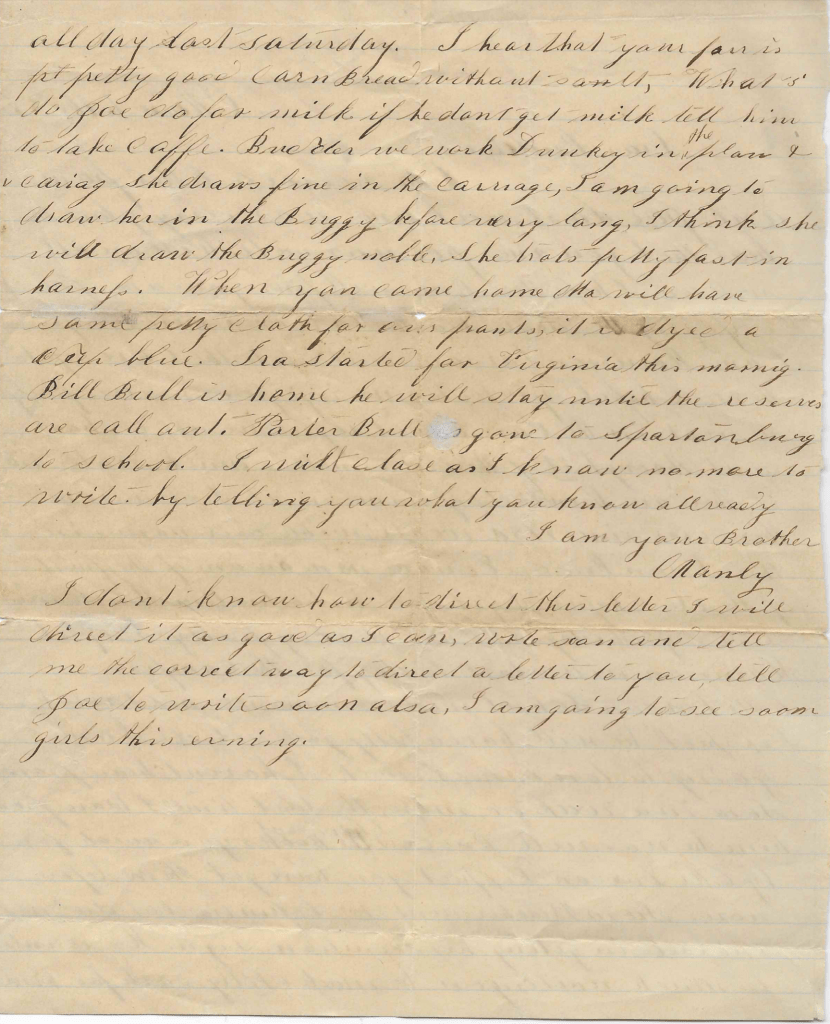 all day Last Saturday. I hear that your fair is
pt petty good Corn Bread without sault, What's
do Joe do for milk if he dont get milk tell him
to take Caffe. Budder we work Dunkey in the plow &
cariag She draws fine in the Carriage, I am going to
draw her in the Buggy before verry long, I think she
will draw the Buggy noble, She trots petty fast in
harness. When you come home Ma will have
some petty cloth for our pants, it is dyed a
deep blue. Ira started for Virginia this mornig.
Bill Bull is home he will stay until the reserves
are call out. Porter Bull is gone to Spartonburg
to school. I will close as I know no more to
write. by telling you what you know allready
I am your Brother
Manly
I dont know how to direct this letter I will
direct it as good as I can, wrote soon and tell
me the correct way to direct a letter to you, tell
Joe to write soon also, I am going to see soom
girls this evning.